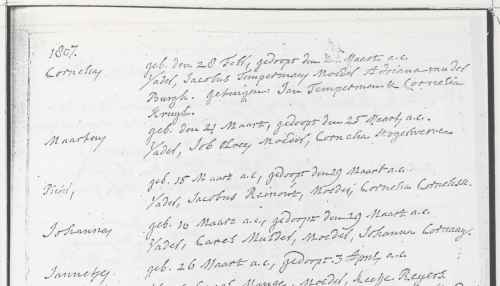 1807.
Cornelis geb. den 28 Feb, gedoopt den Maart a.c.
Vader, Jacobus Tempermen Moeder Adriana van der
Burgh. getuigen Jan Temperman & Cornelia
Kruyk.
Maarten geb. den 21 Maart, gedoopt den 25 Maart, a.c.
Vader, Job Moeder, Cornelia
Piter, geb. 15 Maart a.c, gedoopt den 29 Maart a.c.
Vader, Jacobus Reinout, Moeder, Cornelia Cornelisse.
Johannes geb. 10 Maart a.c, gedoopt den 29 Maart a.c.
Vader, Carel Mulder, Moeder, Johanna Cornaay.
Jannetje, geb. 26 Maart a.c. gedoopt 3 April, a.c.
Moeder, Keetje Reyers